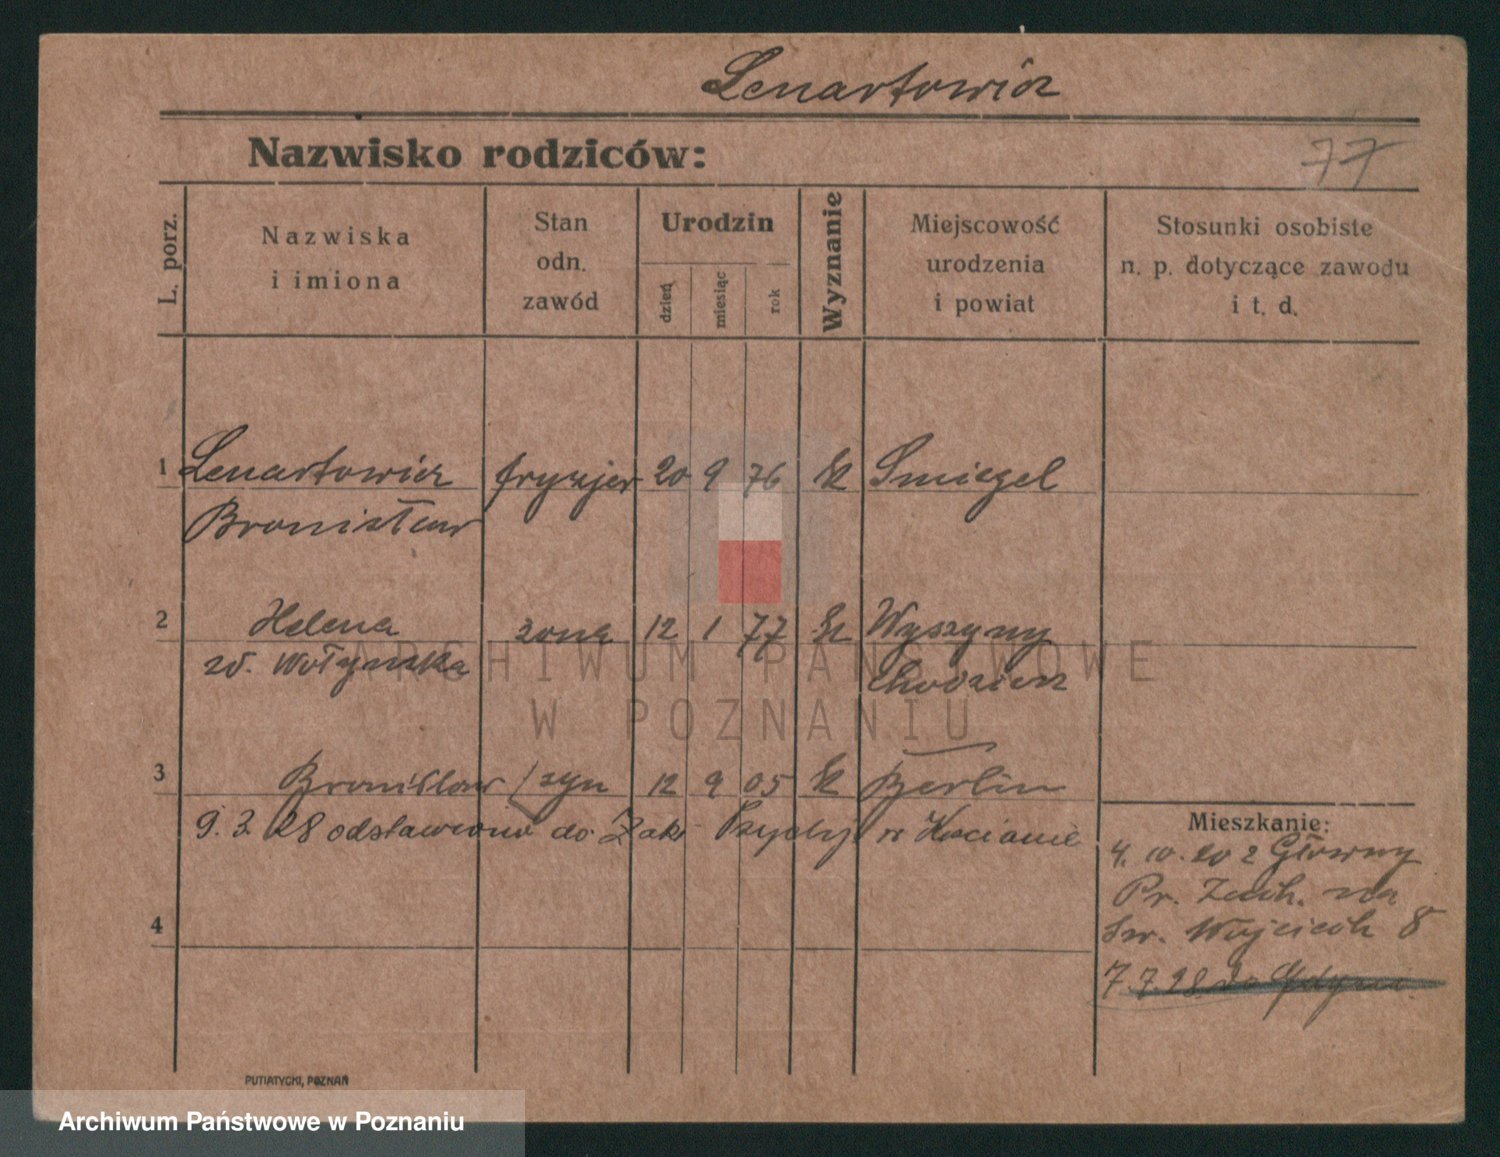 Lenartowicz
Nazwisko rodziców:
77
L. porz.
Nazwiska
i imiona
Stan
odn.
zawód
Urodzin
dzień
miesiąc
rok
Wyznanie
Miejscowość
urodzenia
i powiat
Stosunki osobiste
n. p. dotyczące zawodu
i t. d.
1 Lenartowicz fryzjer 20 9 76 kt Smigel
Bronisław
2 Helena żona 12 1 77 kt Wyszyny
zd. Wołyńska Chodzież
3 Bronisław syn 12 9 05 kt Berlin
9. 3. 28 odstawiono do Zakł. Psychj w Kościanie
Mieszkanie:
4. 10. 20 z Główny
Pr. Zach. na
Św. Wojciech 8
4
7. 7. 28 do Gdyni
PUTIATYCKI, POZNAŃ
ARCHIWUM PAŃSTWOWE
W POZNANIU
Archiwum Państwowe w Poznaniu